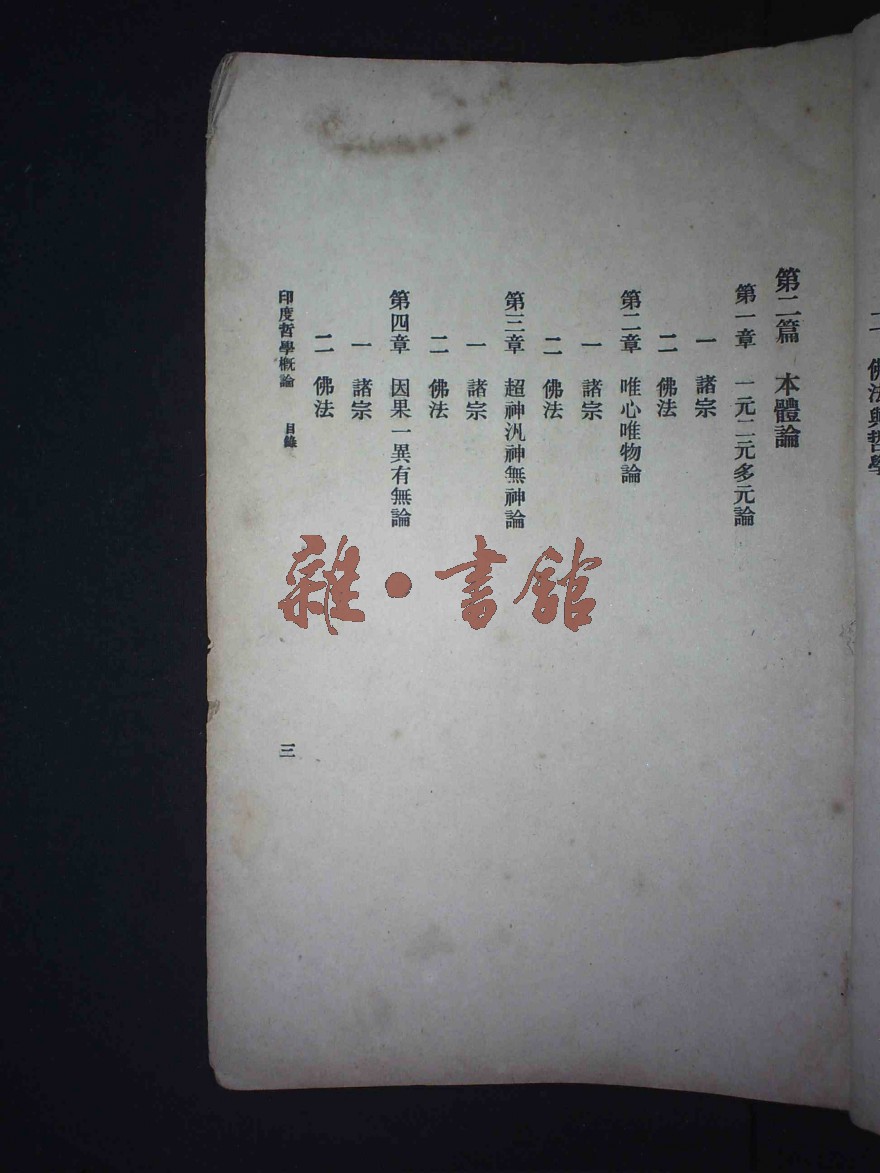 二 佛法與哲學
第二篇 本體論
第一章 一元二元多元論
一 諸宗
二 佛法
第二章 唯心唯物論
一 諸宗
二 佛法
第三章 超神汎神無神論
一 諸宗
二 佛法
第四章 因果一異有無論
一 諸宗
二 佛法
印度哲學概論 目錄
三
雜·書館